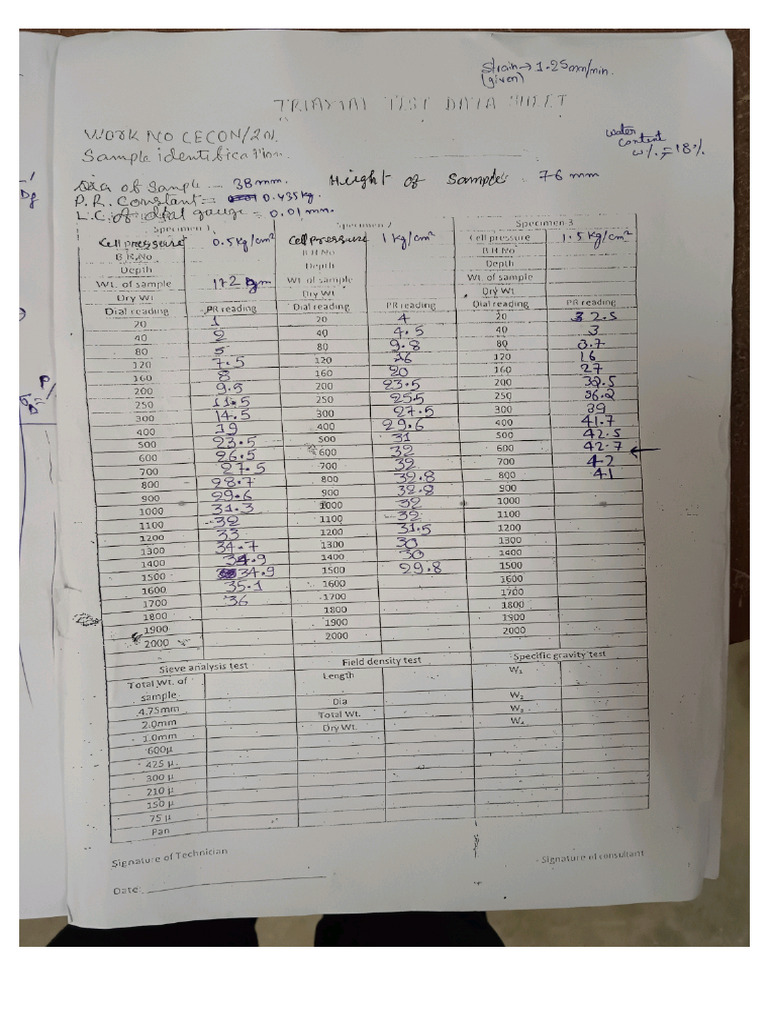 Strain → 1.25 mm/min.
(given)
TRIAXIAL TEST DATA SHEET
WORK NO CECON/201
Water content w%. = 18%
Sample identification.
Dia of Sample - 38 mm. Height of Sample. 76 mm
P.R. Constant = 0.435 kg.
L.C. of dial gauge = 0.01 mm.
Specimen 1 Specimen 2 Specimen 3
Cell pressure 0.5 kg/cm² Cell pressure 1 kg/cm² Cell pressure 1.5 kg/cm²
B.H.No B.H No B.H No
Depth Depth Depth
Wt. of sample 172 gm Wt. of sample Wt. of sample
Dry Wt Dry Wt Dry Wt
Dial reading PR reading Dial reading PR reading Dial reading PR reading
20 1 20 4 20 2.5
40 2 40 4.5 40 3
80 5 80 9.8 80 3.7
120 7.5 120 16 120 16
160 8 160 20 160 27
200 9.5 200 23.5 200 32.5
250 11.5 250 25.5 250 36.2
300 14.5 300 27.5 300 39
400 19 400 29.6 400 41.7
500 23.5 500 31 500 42.5
600 26.5 600 32 600 42.7 ←
700 27.5 700 32 700 42
800 28.7 800 32.8 800 41
900 29.6 900 32.8 900
1000 31.3 1000 32 1000
1100 32 1100 32 1100
1200 33 1200 31.5 1200
1300 34.7 1300 30 1300
1400 34.9 1400 30 1400
1500 34.9 1500 29.8 1500
1600 35.1 1600 1600
1700 36 1700 1700
1800 1800 1800
1900 1900 1900
2000 2000 2000
Sieve analysis test Field density test Specific gravity test
Total Wt. of sample Length W₁
4.75mm Dia W₂
2.0mm Total Wt. W₃
1.0mm Dry Wt. W₄
600µ
425 µ
300 µ
210 µ
150 µ
75 µ
Pan
Signature of Technician Signature of consultant
Date: